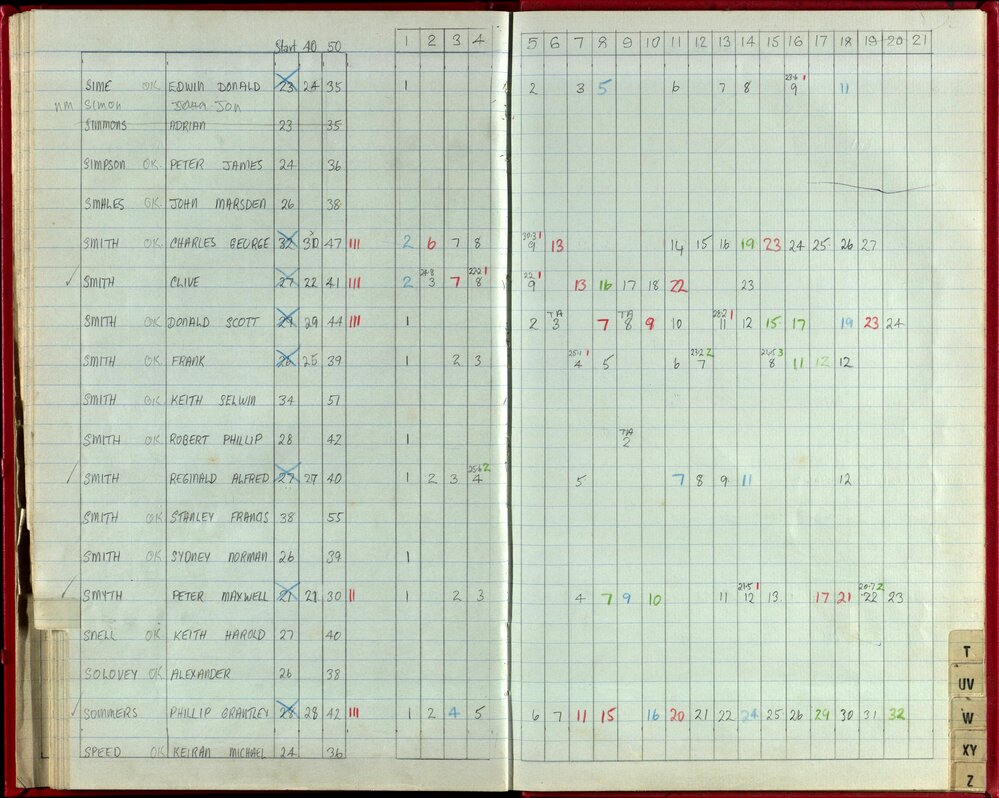 Start 40 50 1 2 3 4 5 6 7 8 9 10 11 12 13 14 15 16 17 18 19 20 21
SIME OK EDWIN DONALD 23 24 35 1 2 3 5 6 7 8 23·6 1 9 11
nm SIMON JON
SIMMONS ADRIAN 23 35
SIMPSON OK PETER JAMES 24 36
SMALES OK JOHN MARSDEN 26 38
SMITH OK CHARLES GEORGE 32 30 47 III 2 6 7 8 30·3 1 9 13 14 15 16 19 23 24 25 26 27
SMITH CLIVE 27 22 41 III 2 24·8 3 7 27·2 1 8 2·2 1 9 13 16 17 18 22 23
SMITH OK DONALD SCOTT 29 29 44 III 1 2 TA 3 7 TA 8 9 10 28·2 1 11 12 15 17 19 23 24
SMITH OK FRANK 26 25 39 1 2 3 25·1 1 4 5 6 23·2 2 7 21·5 3 8 11 12 12
SMITH OK KEITH SELWIN 34 51
SMITH OK ROBERT PHILLIP 28 42 1 TA 2
SMITH REGINALD ALFRED 27 27 40 1 2 3 25·6 2 4 5 7 8 9 11 12
SMITH OK STANLEY FRANCIS 38 55
SMITH OK SYDNEY NORMAN 26 39 1
SMYTH PETER MAXWELL 21 21 30 II 1 2 3 4 7 9 10 11 21·5 1 12 13 17 21 20·7 2 22 23
SNELL OK KEITH HAROLD 27 40
SOLOVEY OK ALEXANDER 26 38
SOMMERS PHILLIP GRANTLEY 28 28 42 III 1 2 4 5 6 7 11 15 16 20 21 22 24 25 26 29 30 31 32
SPEED OK KEIRAN MICHAEL 24 36
T
UV
W
XY
Z